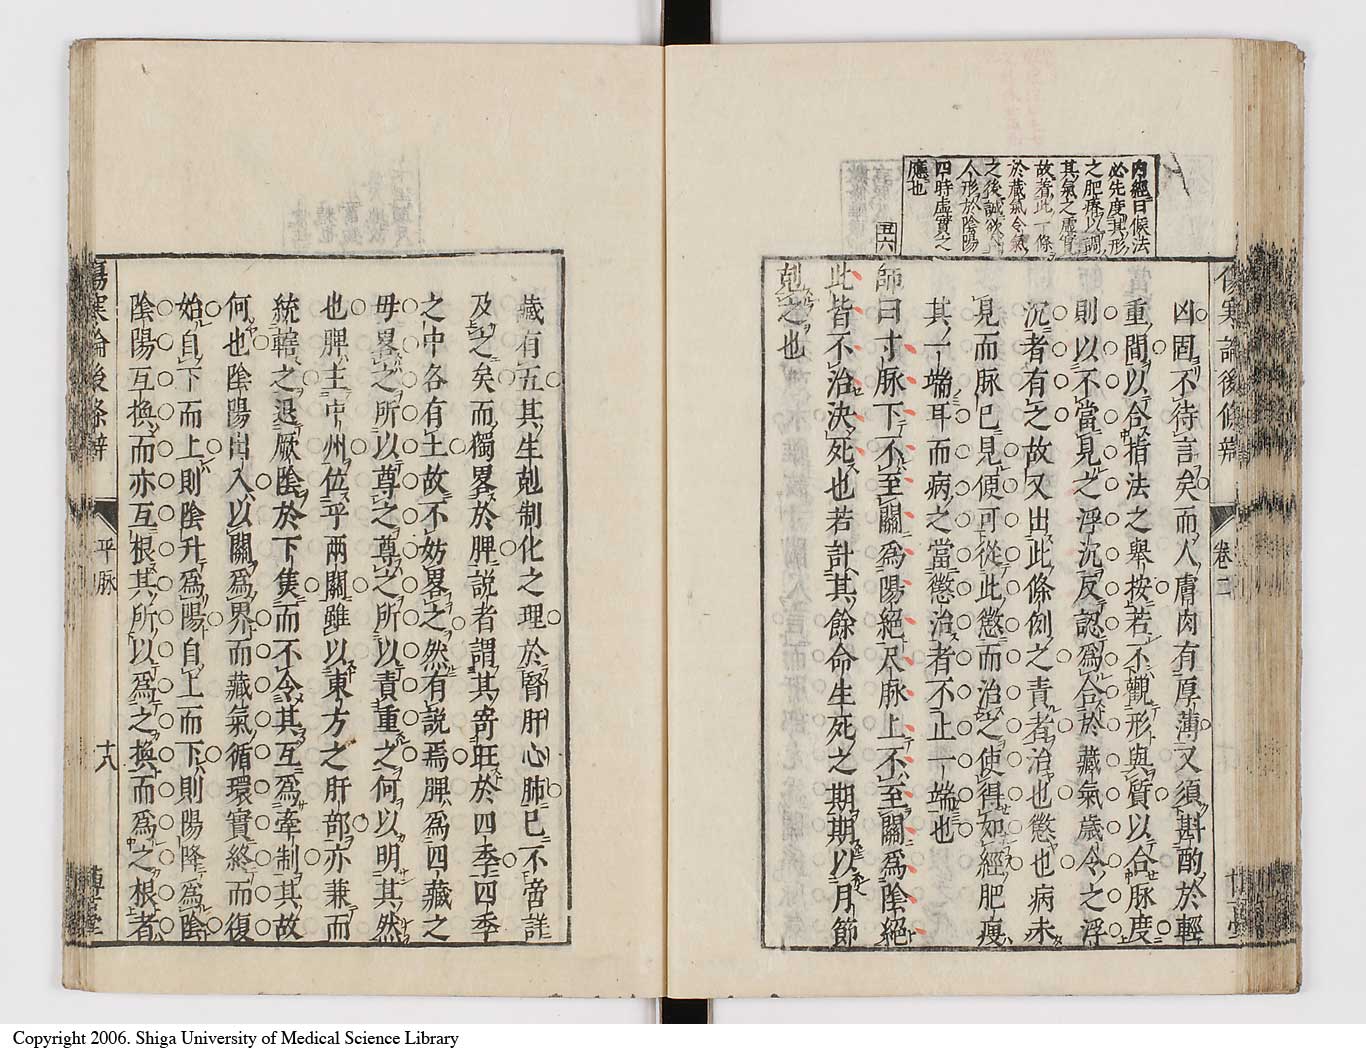 傷寒論後條辨
卷二
內經曰候法
必先度其形
之肥瘠以調
其氣之虛實
故着此一條
於藏氣令氣
之後誠欲
人形於陰陽
四時虛實之
應也
丑六
凶固不待言矣而人膚肉有厚薄又須斟酌於輕
重間以合指法之舉按若不觀形與質以合脉度
則以不當見之浮沉反認爲合於藏氣歲令之浮
沉者有之故又出此條例之責者治也懲也病未
見而脉已見便可從此懲而治之使得如經肥瘦
其一端耳而病之當懲治者不止一端也
師曰寸脉下不至關爲陽絕尺脉上不至關爲陰絕
此皆不治決死也若計其餘命生死之期期以月節
剋之也
藏有五其生剋制化之理於腎肝心肺已不啻詳
及之矣而獨畧於脾說者謂其寄旺於四季四季
之中各有土故不妨畧之然有說焉脾爲四藏之
毋畧之所以尊之尊之所以責重之何以明其然
也脾主中州位平兩關雖以東方之肝部亦兼而
統轄之退厥陰於下焦而不令其互爲牽制其故
何也陰陽出入以關爲界而藏氣循環實終而復
始自下而上則陰升爲陽自上而下則陽降爲陰
陰陽互換而亦互根其所以爲之換而爲之根者
傷寒論後條辨
平脉
十八
博古堂
Copyright 2006. Shiga University of Medical Science Library